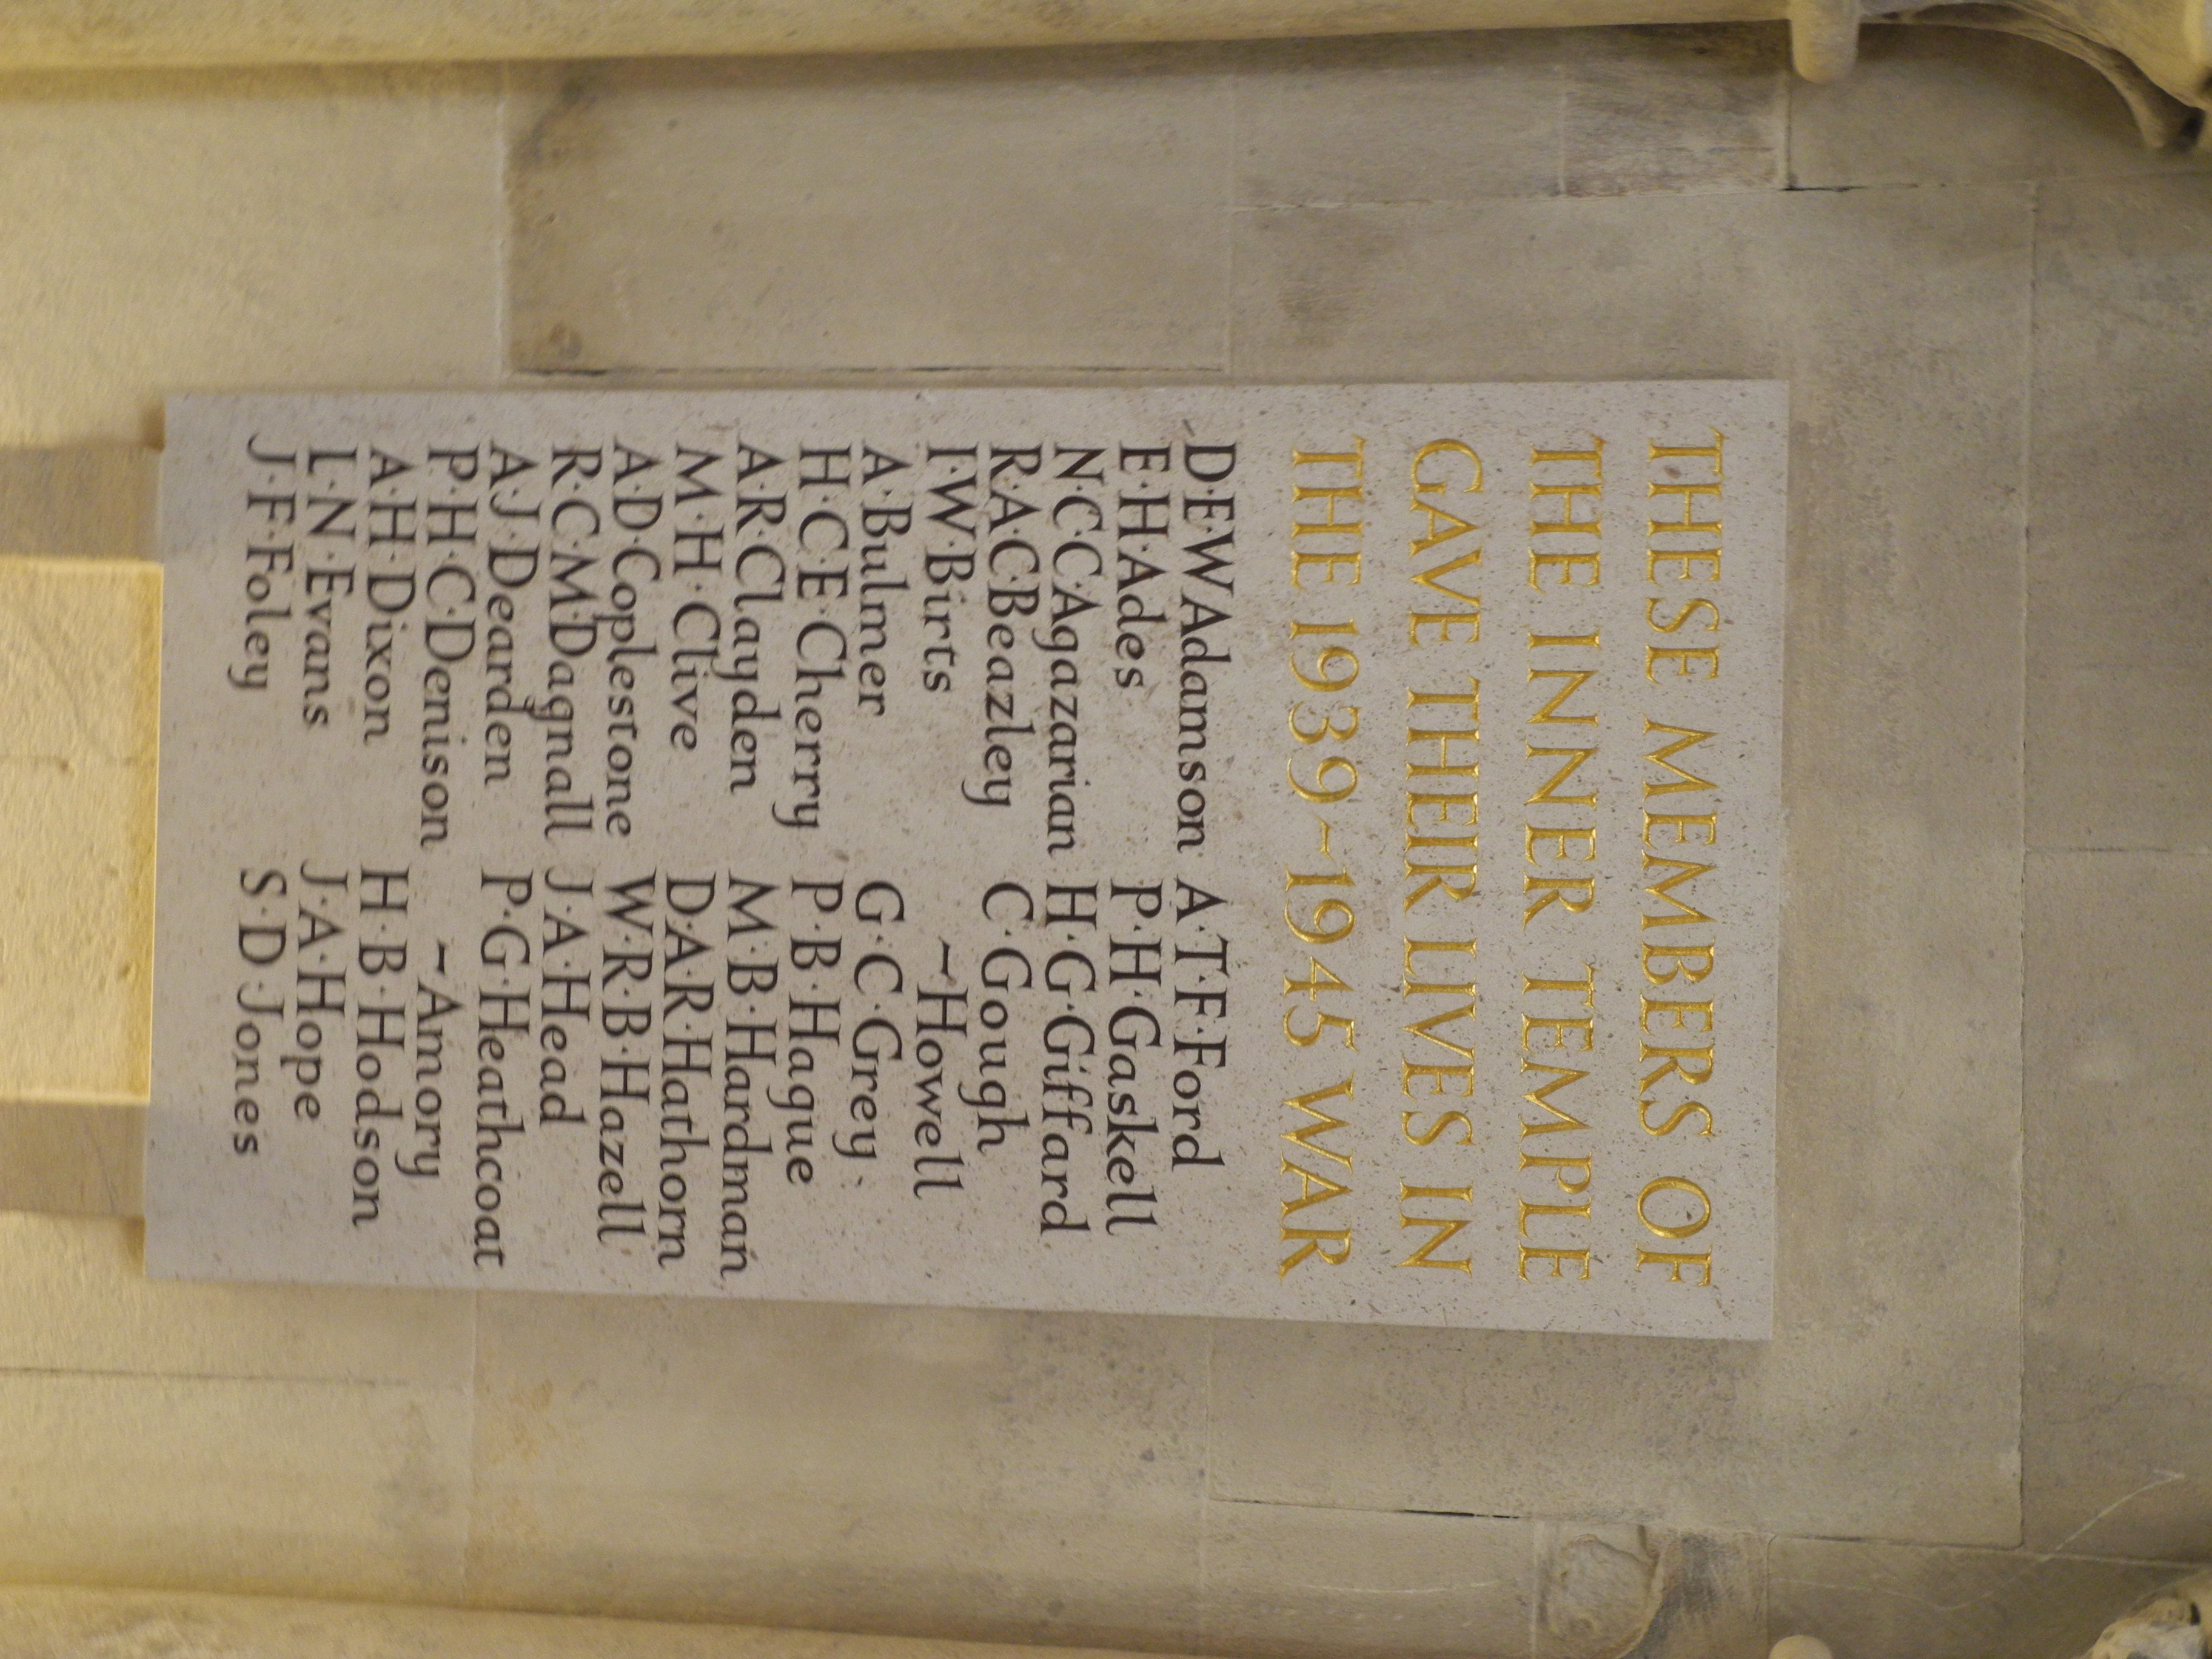 THESE MEMBERS OF
THE INNER TEMPLE
GAVE THEIR LIVES IN
THE 1939~1945 WAR
D·F·W·Adamson
E·H·Ades
N·C·C·Agazarian
R·A·C·Beazley
I·W·Birts
A·Bulmer
H·C·E·Cherry
A·R·Clayden
M·H·Clive
A·D·Coplestone
R·C·M·Dagnall
A·J·Dearden
P·H·C·Denison
A·H·Dixon
L·N·Evans
J·F·Foley
A·T·F·Ford
P·H·Gaskell
H·G·Giffard
C·Gough
~Howell
G·C·Grey
P·B·Hague
M·B·Hardman
D·A·R·Hathorn
W·R·B·Hazell
J·A·Head
P·G·Heathcoat
~Amory
H·B·Hodson
J·A·Hope
S·D·Jones